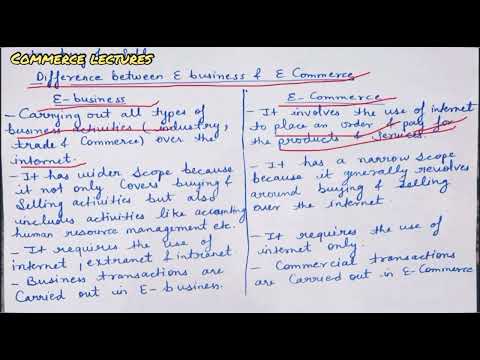 COMMERCE LECTURES
Difference between E business & E Commerce
E-business
- Carrying out all types of
business activities (industry,
trade & Commerce) over the
internet.
- It has wider scope because
it not only covers buying &
Selling activities but also
includes activities like accounting
human resource management etc.
- It requires the use of
internet, extranet & intranet
- Business transactions are
Carried out in E-business.
E-Commerce
- It involves the use of internet
to place an order & pay for
the products & Services.
- It has a narrow scope
because it generally revolves
around buying & Selling
over the internet.
- It requires the use of
internet only.
- Commercial transactions
are Carried out in E-Commerce